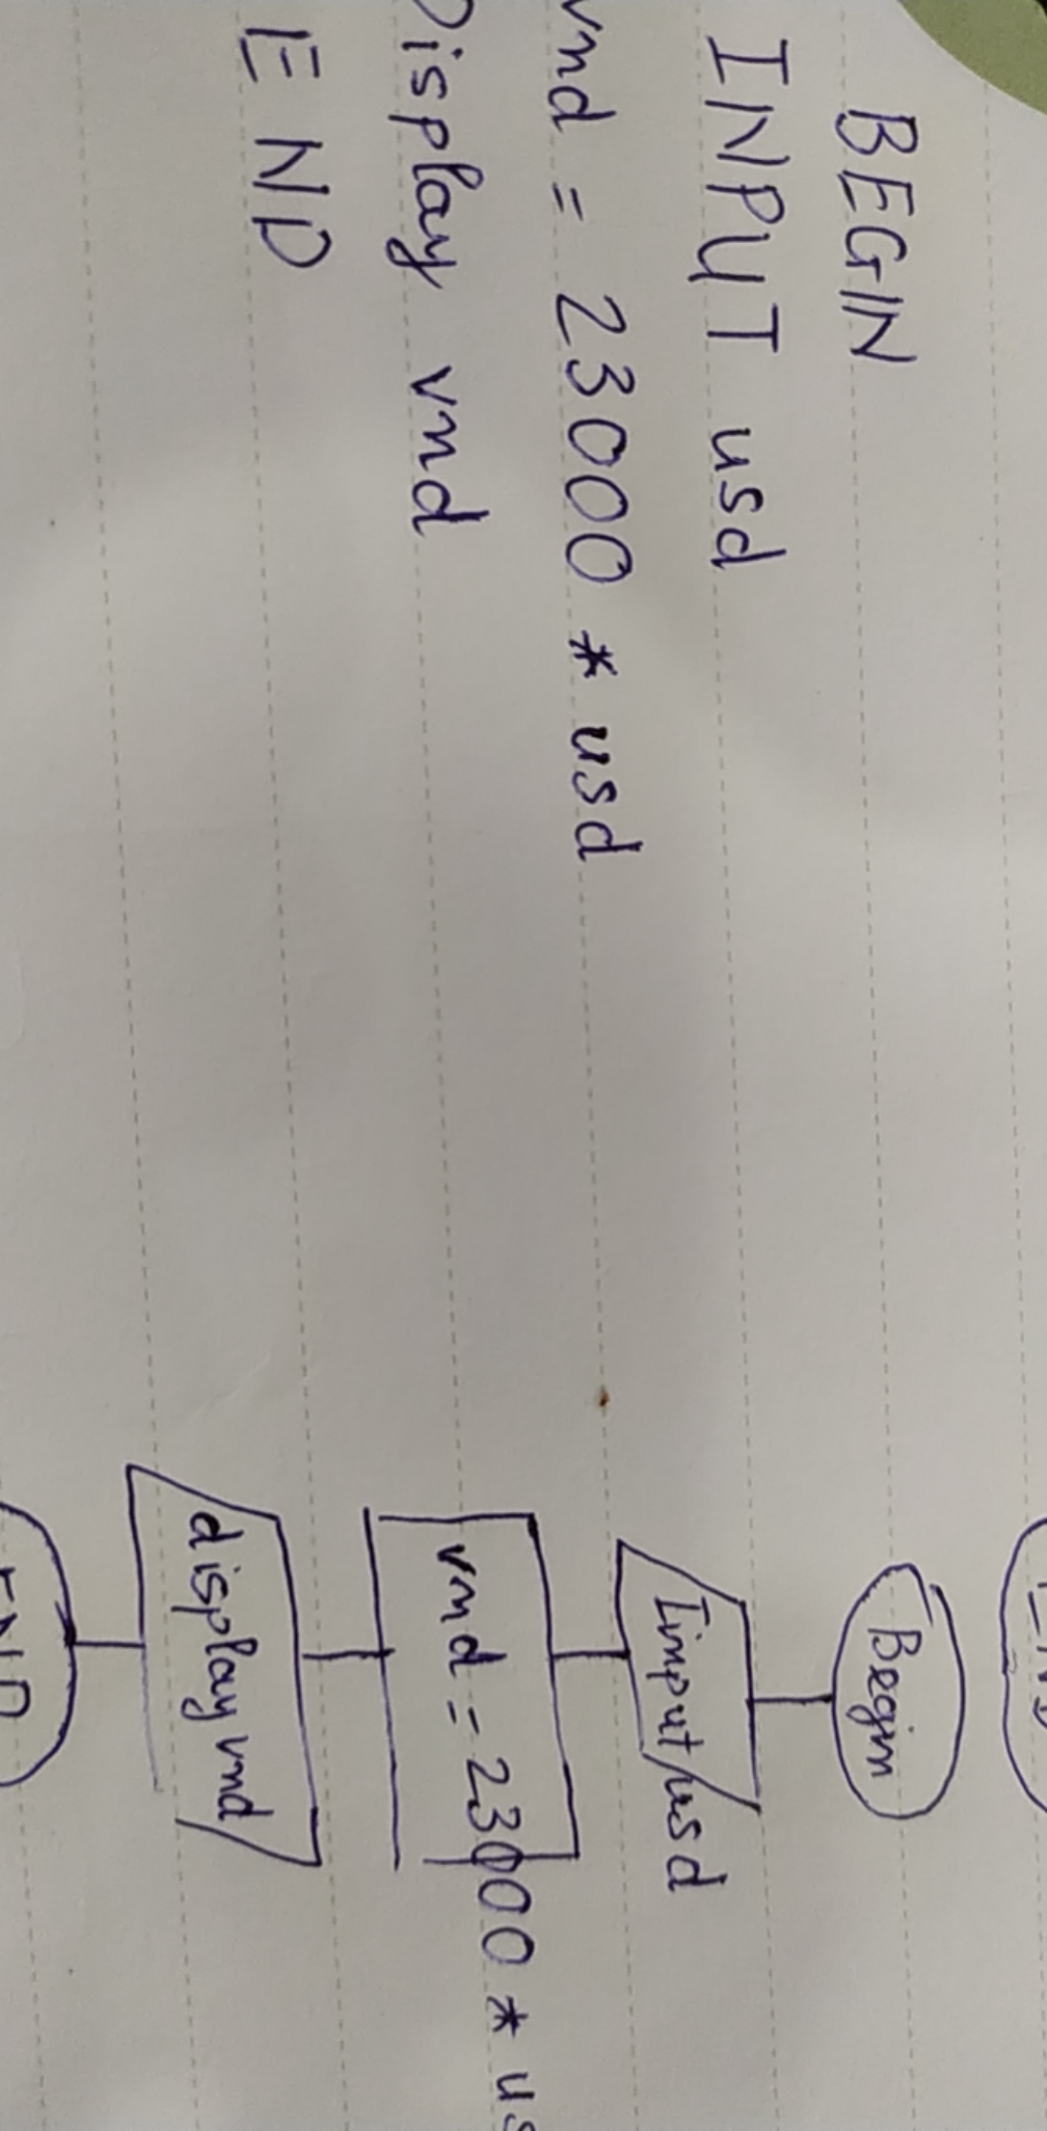 BEGIN
INPUT usd
vnd = 23000 * usd
Display vnd
END
Begin
Input usd
vnd = 23000 * us
display vnd
END